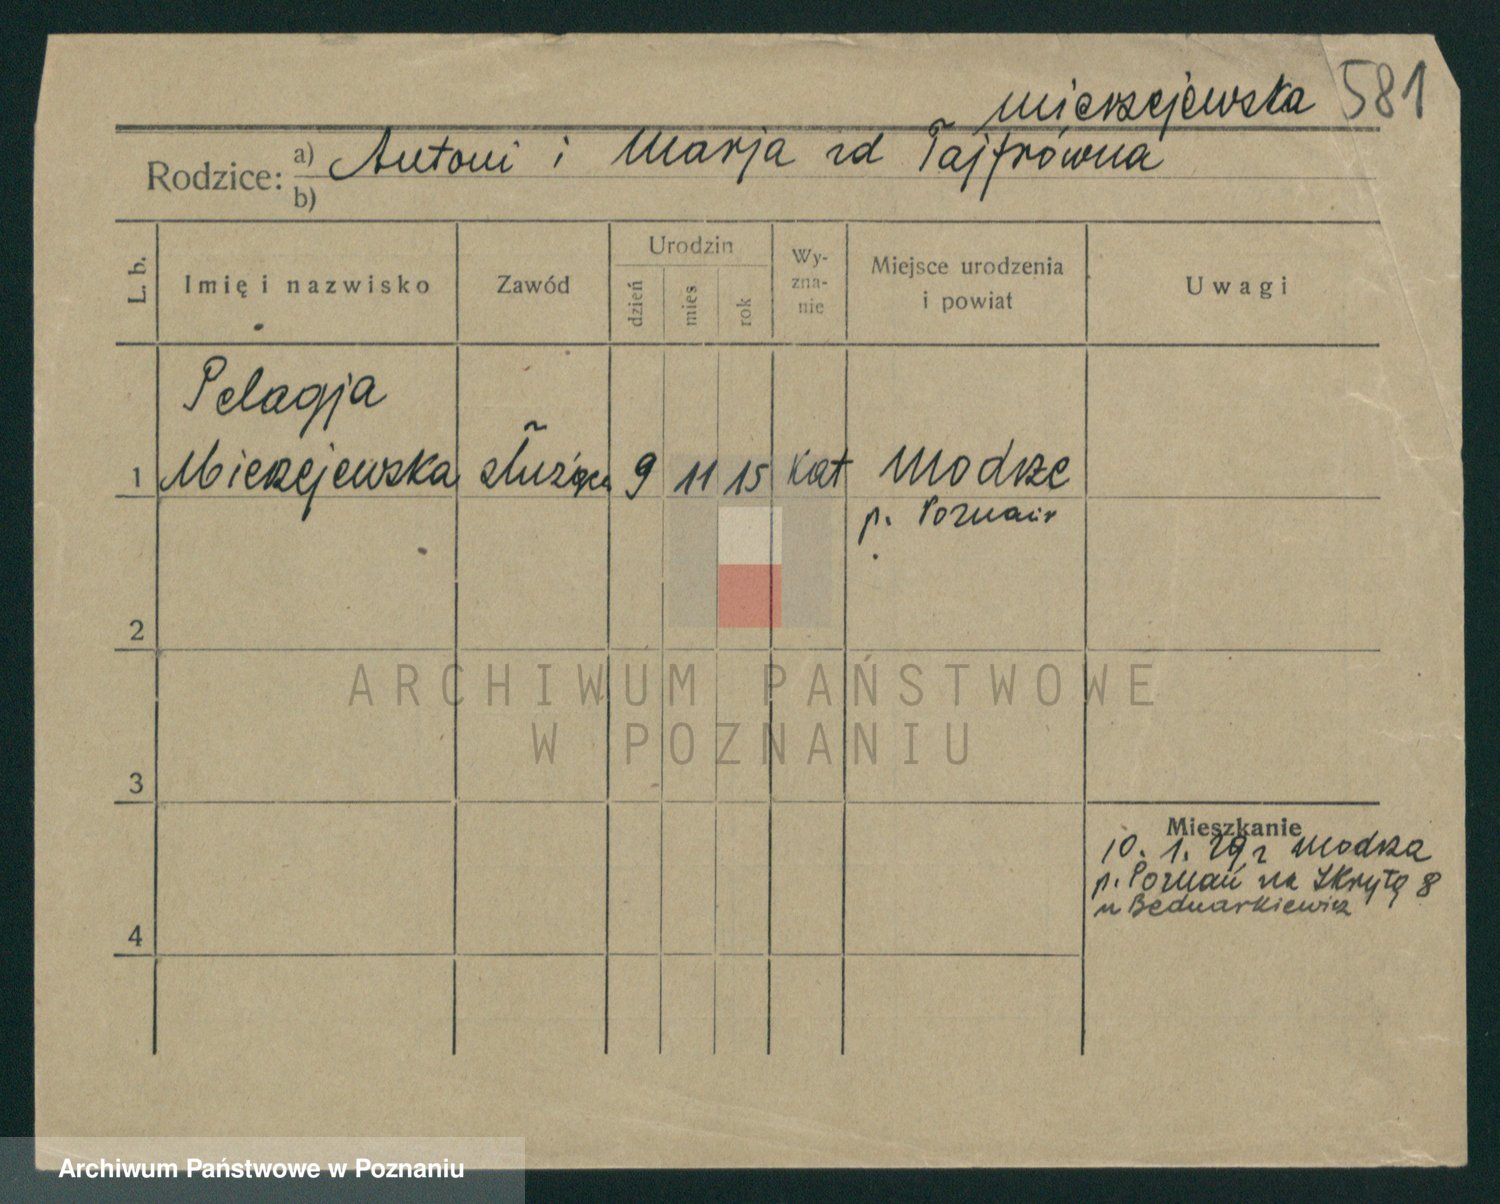 Mierzejewska 581
Rodzice: a) Antoni i Marja zd Tajfrówna
b)
L. b.
Imię i nazwisko
Zawód
Urodzin
dzień
mies
rok
Wy-
zna-
nie
Miejsce urodzenia
i powiat
Uwagi
Pelagja
1 Mierzejewska służąca 9 11 15 kat Modrze
p. Poznań
2
ARCHIWUM PAŃSTWOWE
W POZNANIU
3
Mieszkanie
10. 1. 29 r Modrza
p. Poznań na Skrytą 8
u Bednarkiewicz
4
Archiwum Państwowe w Poznaniu